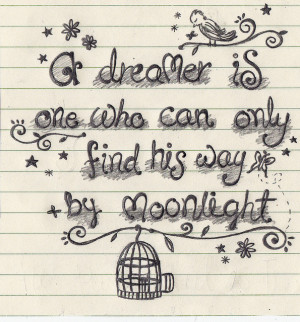 A dreamer is
one who can only
find his way
by moonlight